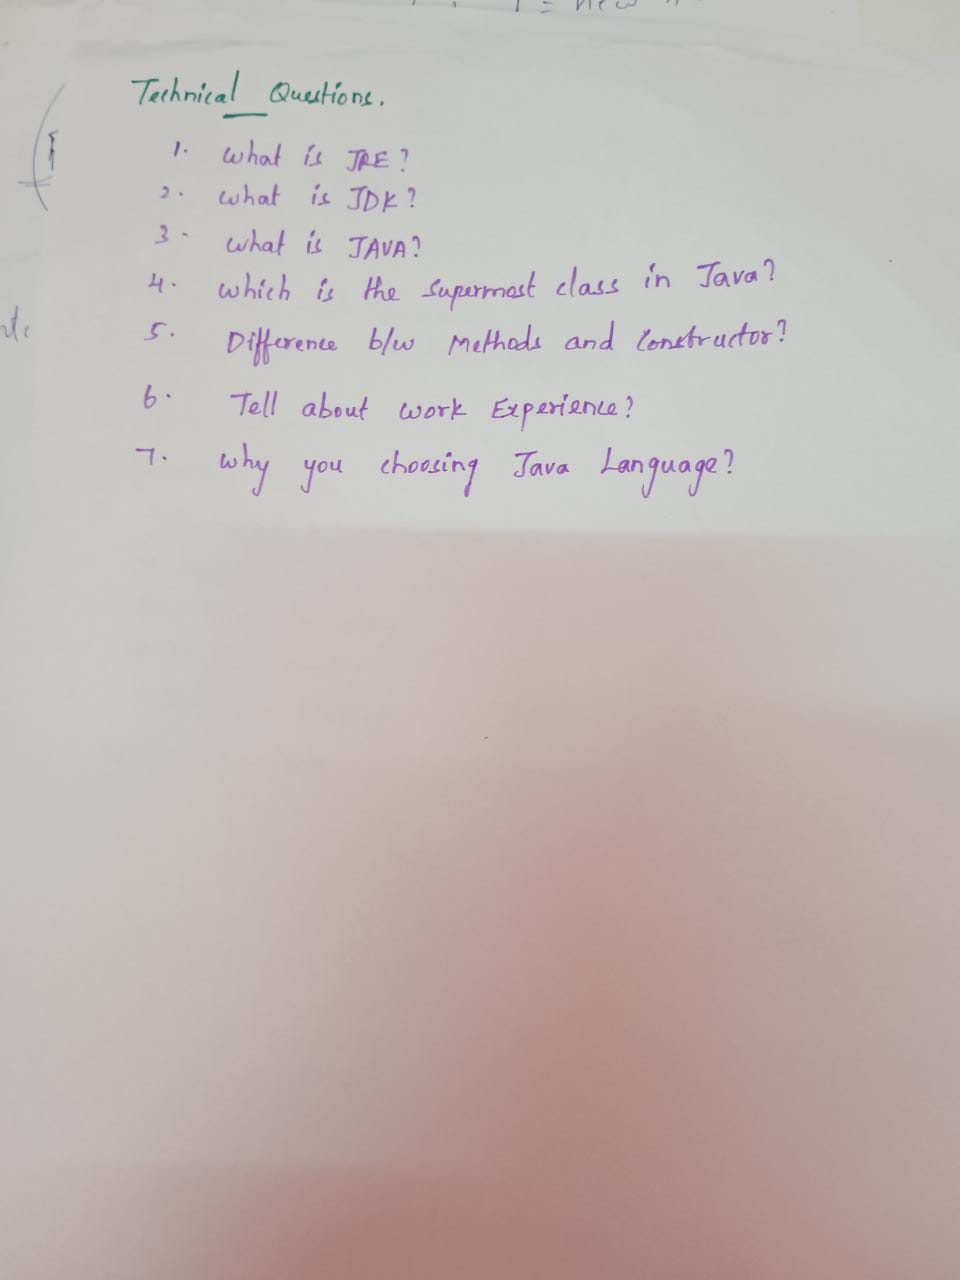 = new
Technical Questions.
1. What is JRE?
2. what is JDK?
3. what is JAVA?
4. which is the supermost class in Java?
5. Difference b/w Methods and Constructor?
6. Tell about work Experience?
7. why you choosing Java Language?